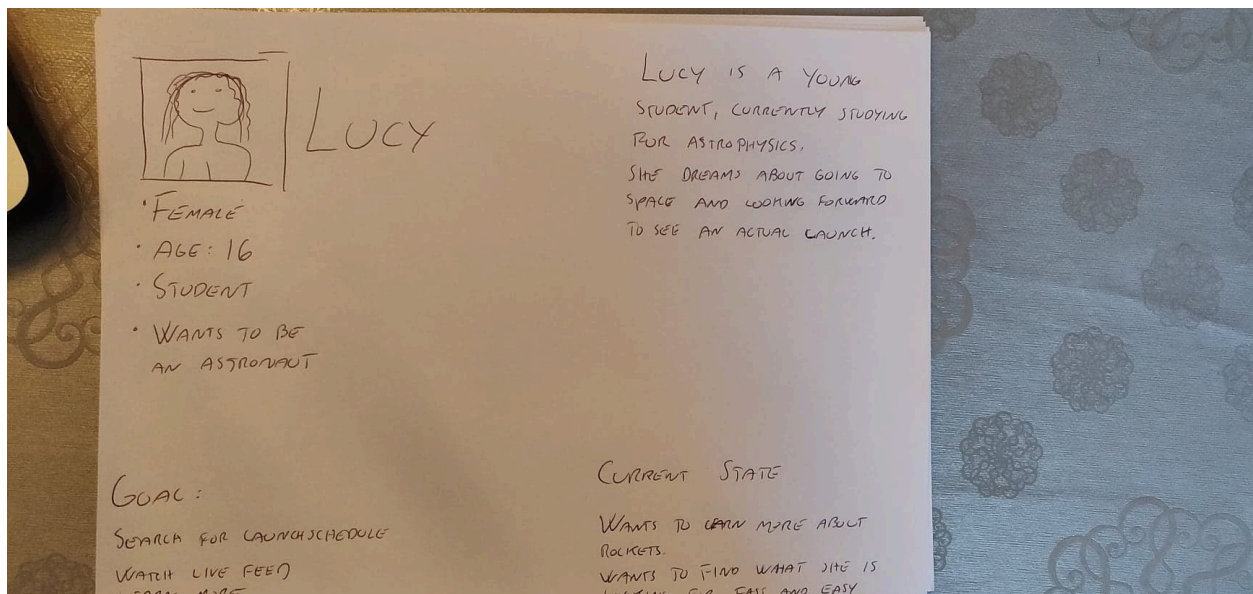 LUCY
• FEMALE
• AGE: 16
• STUDENT
• WANTS TO BE
AN ASTRONAUT
LUCY IS A YOUNG
STUDENT, CURRENTLY STUDYING
FOR ASTROPHYSICS.
SHE DREAMS ABOUT GOING TO
SPACE AND LOOKING FORWARD
TO SEE AN ACTUAL LAUNCH.
GOAL:
SEARCH FOR LAUNCHSCHEDULE
WATCH LIVE FEED
LEARN MORE
CURRENT STATE
WANTS TO LEARN MORE ABOUT
ROCKETS.
WANTS TO FIND WHAT SHE IS
LOOKING FOR FAST AND EASY